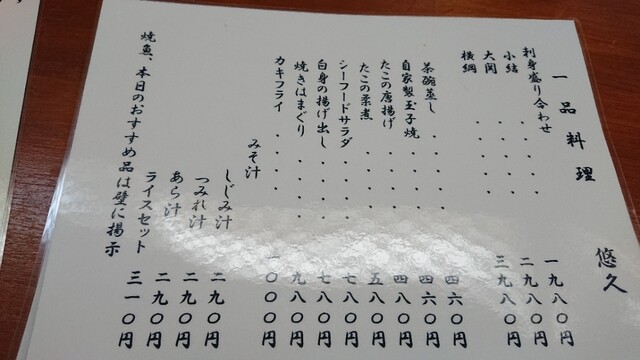 一品料理 悠久
刺身盛り合わせ
小結 ・・・・ 一九八〇円
大関 ・・・・ 二九八〇円
横綱 ・・・・ 三九八〇円
茶碗蒸し ・・・・ 四六〇円
自家製玉子焼 ・・・・ 四六〇円
たこの唐揚げ ・・・・ 四八〇円
たこの柔煮 ・・・・ 五八〇円
シーフードサラダ ・・・・ 七八〇円
白身の揚げ出し ・・・・ 七八〇円
焼きはまぐり ・・・・ 九八〇円
カキフライ ・・・・ 一〇〇〇円
みそ汁
しじみ汁 二九〇円
つみれ汁 二九〇円
あら汁 二九〇円
ライスセット 三一〇円
焼魚、本日のおすすめ品は壁に掲示